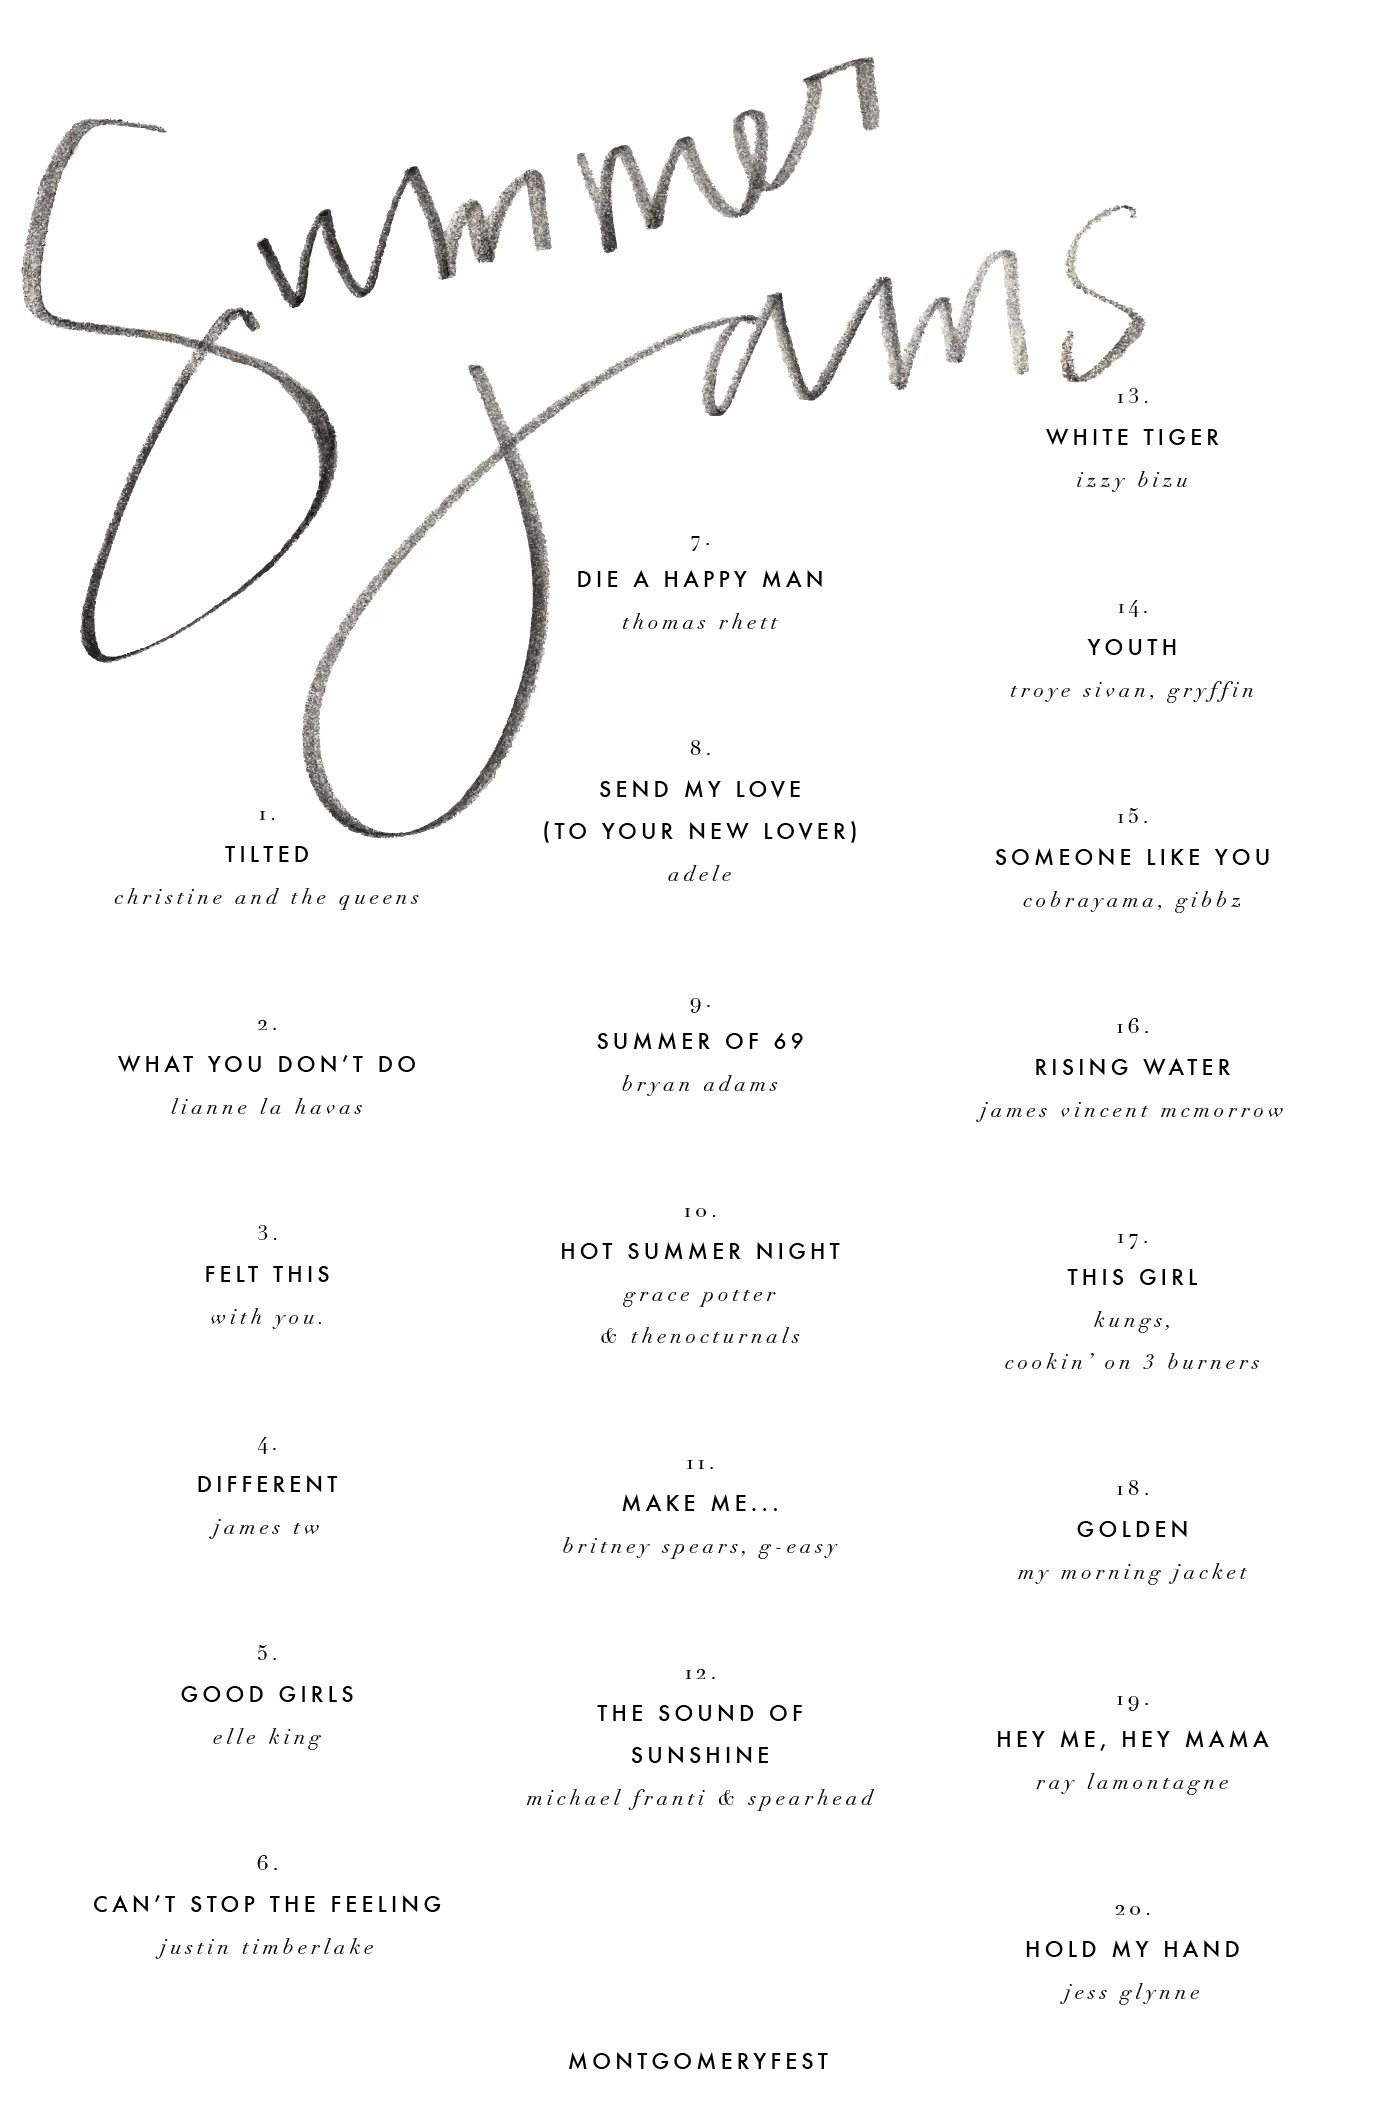 Summer
Jams
1.
TILTED
christine and the queens
2.
WHAT YOU DON'T DO
lianne la havas
3.
FELT THIS
with you.
4.
DIFFERENT
james tw
5.
GOOD GIRLS
elle king
6.
CAN'T STOP THE FEELING
justin timberlake
7.
DIE A HAPPY MAN
thomas rhett
8.
SEND MY LOVE
(TO YOUR NEW LOVER)
adele
9.
SUMMER OF 69
bryan adams
10.
HOT SUMMER NIGHT
grace potter
& thenocturnals
11.
MAKE ME...
britney spears, g-easy
12.
THE SOUND OF
SUNSHINE
michael franti & spearhead
13.
WHITE TIGER
izzy bizu
14.
YOUTH
troye sivan, gryffin
15.
SOMEONE LIKE YOU
cobrayama, gibbz
16.
RISING WATER
james vincent mcmorrow
17.
THIS GIRL
kungs,
cookin' on 3 burners
18.
GOLDEN
my morning jacket
19.
HEY ME, HEY MAMA
ray lamontagne
20.
HOLD MY HAND
jess glynne
MONTGOMERYFEST